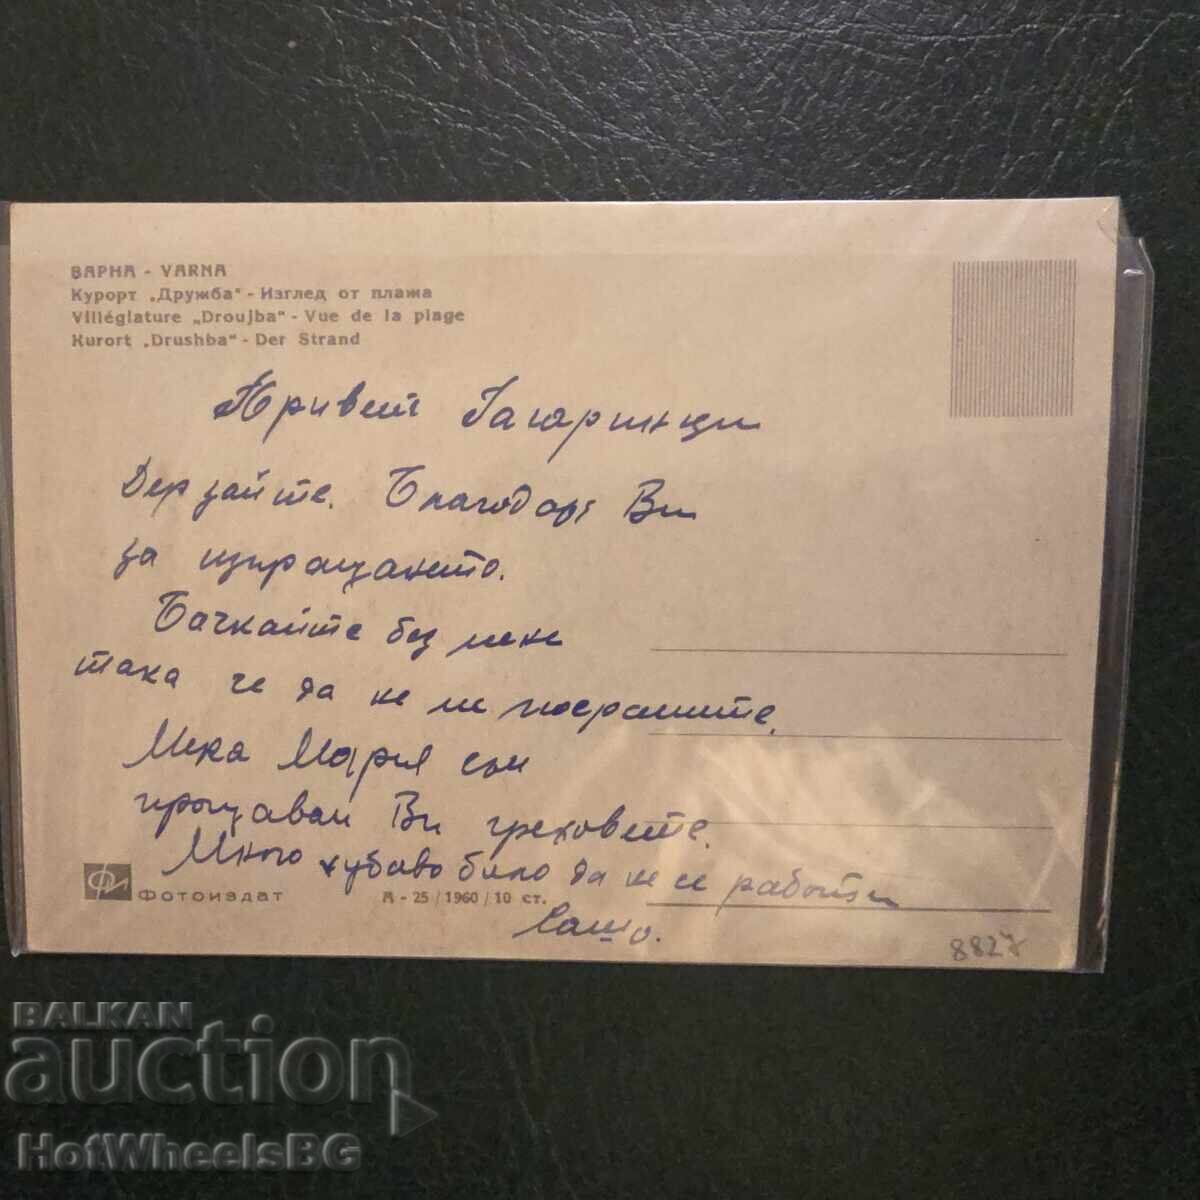 ВАРНА - VARNA
Курорт „Дружба" - Изглед от плажа
Villéglature „Droujba" - Vue de la plage
Kurort „Drushba" - Der Strand
Привет Гагаринци
Дерзайте. Благодаря Ви
за изпращането.
Бачкайте без мене
така че да не ме посрамите.
Мека Мария съм
прощавам Ви греховете.
Много хубаво било да не се работи
Сашо.
Фотоиздат
А - 25 / 1960 / 10 ст.
8827
BALKAN
auction
HotWheelsBG